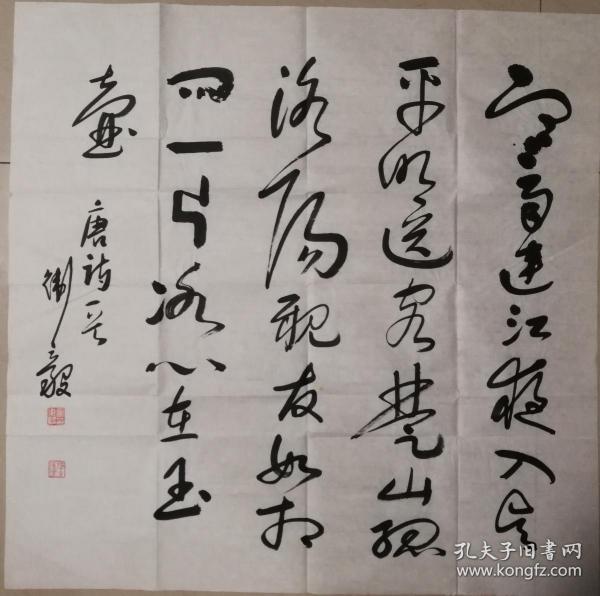 寒雨連江夜入吳
平明送客楚山孤
洛陽親友如相
問一片冰心在玉
壺
唐詩一首
衛毅
孔夫子旧书网
www.kongfz.com